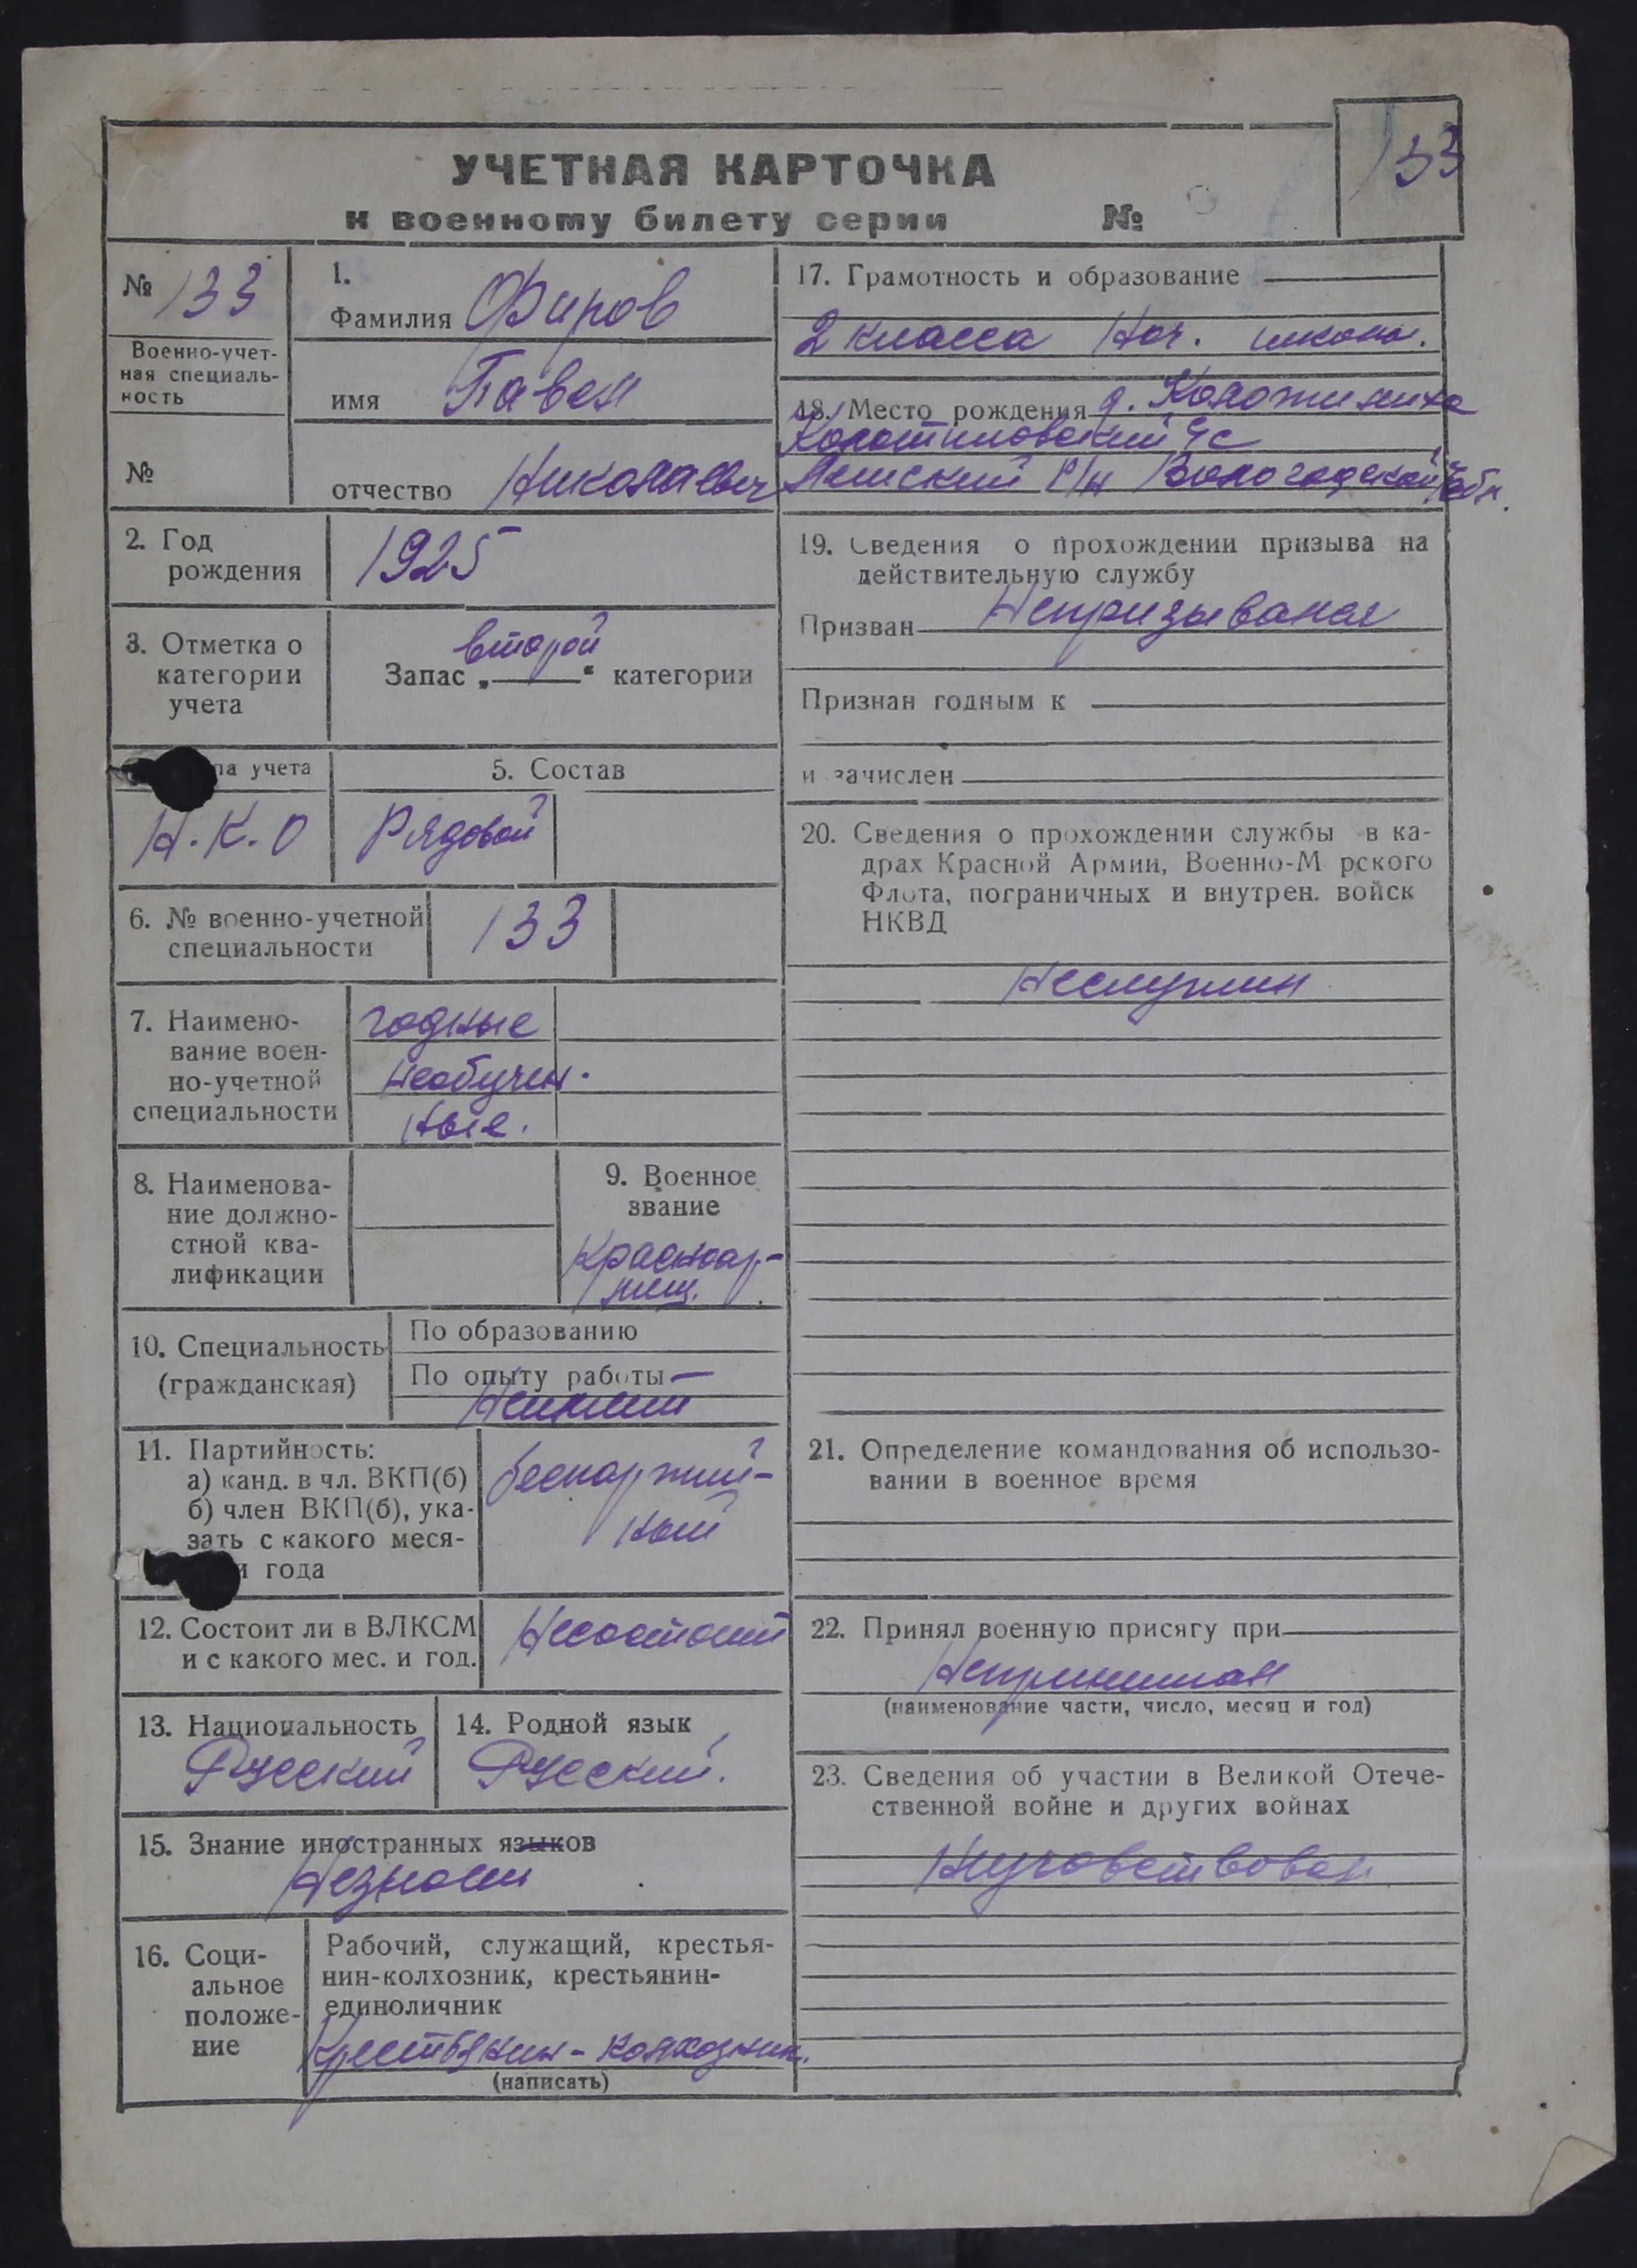 УЧЕТНАЯ КАРТОЧКА
к военному билету серии №
133
№ 133
Военно-учет-
ная специаль-
ность
№
1.
Фамилия Фиров
имя Павел
отчество Николаевич
2. Год
рождения
1925
3. Отметка о
категории
учета
второй
Запас „ “ категории
па учета
Н.К.О
5. Состав
Рядовой
6. № военно-учетной
специальности
133
7. Наимено-
вание воен-
но-учетной
специальности
годные
необучен-
ные.
8. Наименова-
ние должно-
стной ква-
лификации
9. Военное
звание
Красноар-
меец.
10. Специальность
(гражданская)
По образованию
По опыту работы
Неимеет
11. Партийность:
а) канд. в чл. ВКП(б)
б) член ВКП(б), ука-
зать с какого меся-
и года
беспартий-
ный
12. Состоит ли в ВЛКСМ
и с какого мес. и год.
Несостоит
13. Национальность
Русский
14. Родной язык
Русский.
15. Знание иностранных языков
Незнает
16. Соци-
альное
положе-
ние
Рабочий, служащий, крестья-
нин-колхозник, крестьянин-
единоличник
Крестьянин-колхозник.
(написать)
17. Грамотность и образование
2 класса Нач. школы.
18. Место рождения д.
с/с
р/н Вологодской обл.
19. Сведения о прохождении призыва на
действительную службу
Призван Непризывался
Признан годным к
и зачислен
20. Сведения о прохождении службы в ка-
драх Красной Армии, Военно-М рского
Флота, пограничных и внутрен. войск
НКВД
Неслужил
21. Определение командования об использо-
вании в военное время
22. Принял военную присягу при
Непринимал
(наименование части, число, месяц и год)
23. Сведения об участии в Великой Отече-
ственной войне и других войнах
Неучавствовал